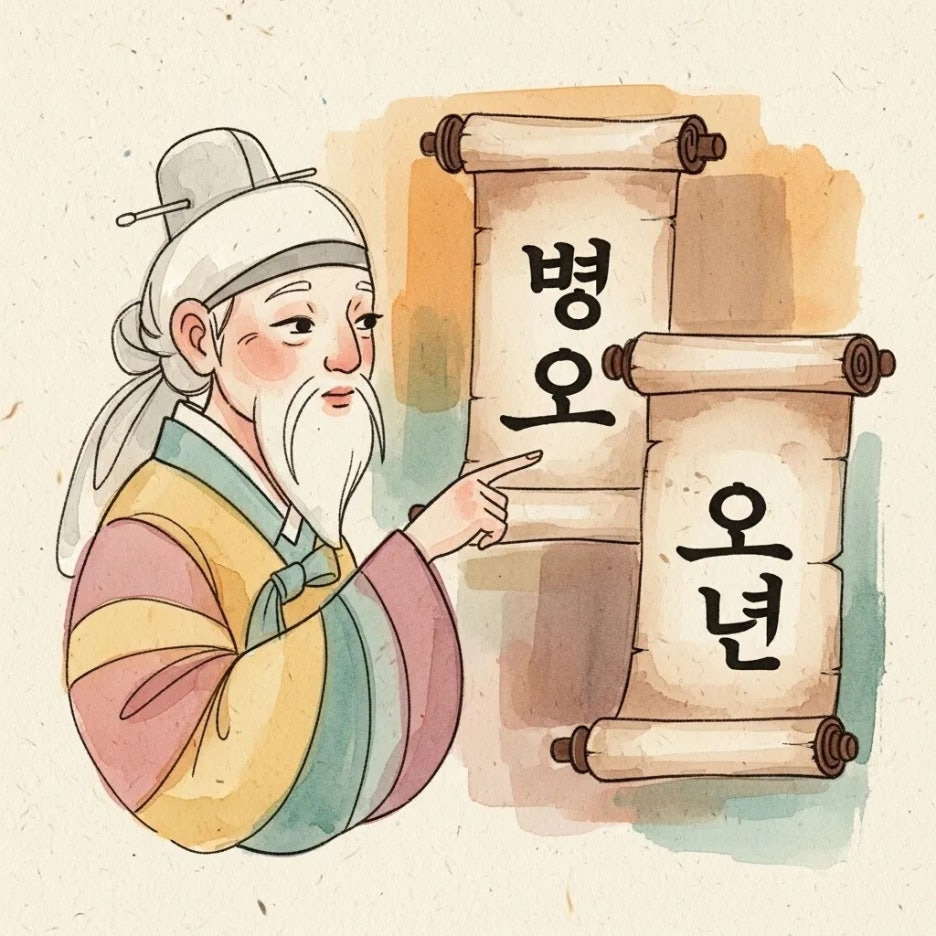 병
오
오
년